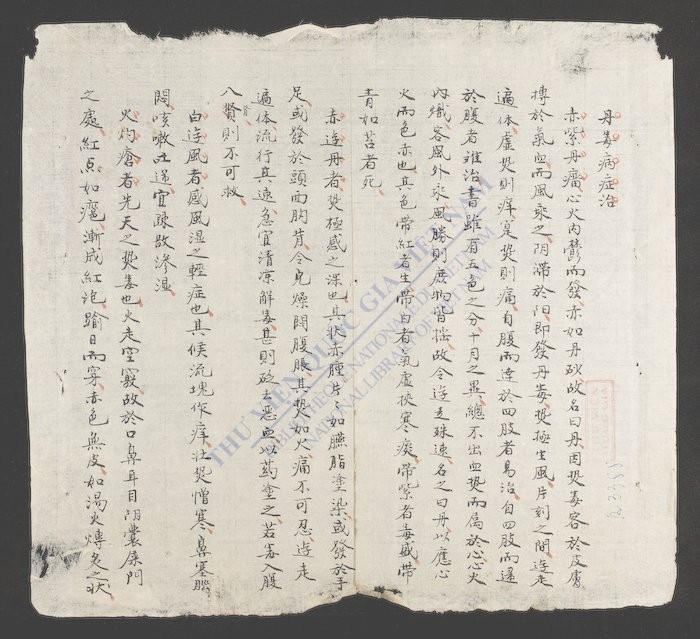 丹毒病症治
赤紫丹癀心火內鬱而發赤如丹砂故名曰丹因热毒客於皮膚
搏於氣血而風乘之阴滯於阳即發丹毒热極生風片刻之間遊走
遍体虛热則痒寔热則痛自腹而達於四肢者易治自四肢而還
於腹者难治書雖有五色之分十月之異總不出血热而属於心心火
內熾客風外乘風勝則庶物皆摇故令遊走殊速名之曰丹以應心
火而色赤也其色帶紅者生帶白者氣虛挾寒痰帶紫者毒盛帶
青如苔者死
赤遊丹者热極感之深也其狀赤腫片片如臙脂塗染或發於手
足或發於頭面胸背令児燥悶腹脹其热如火痛不可忍遊走
遍体流行其速急宜清凉解毒甚則砭去惡血以药塗之若毒入腹
入腎則不可救
白遊風者感風湿之輕症也其候流塊作痒壮热憎寒鼻塞腦
悶咳嗽吐逆宜疎散滲湿
火灼瘡者先天之热毒也火走空竅故於口鼻耳目阴囊屎門
之處紅点如瘟漸成紅泡踰日而穿赤色無皮如湯火煿炙之状
THƯ VIỆN QUỐC GIA VIỆT NAM
BIBLIOTHÈQUE NATIONALE DU VIETNAM
NATIONAL LIBRARY OF VIETNAM